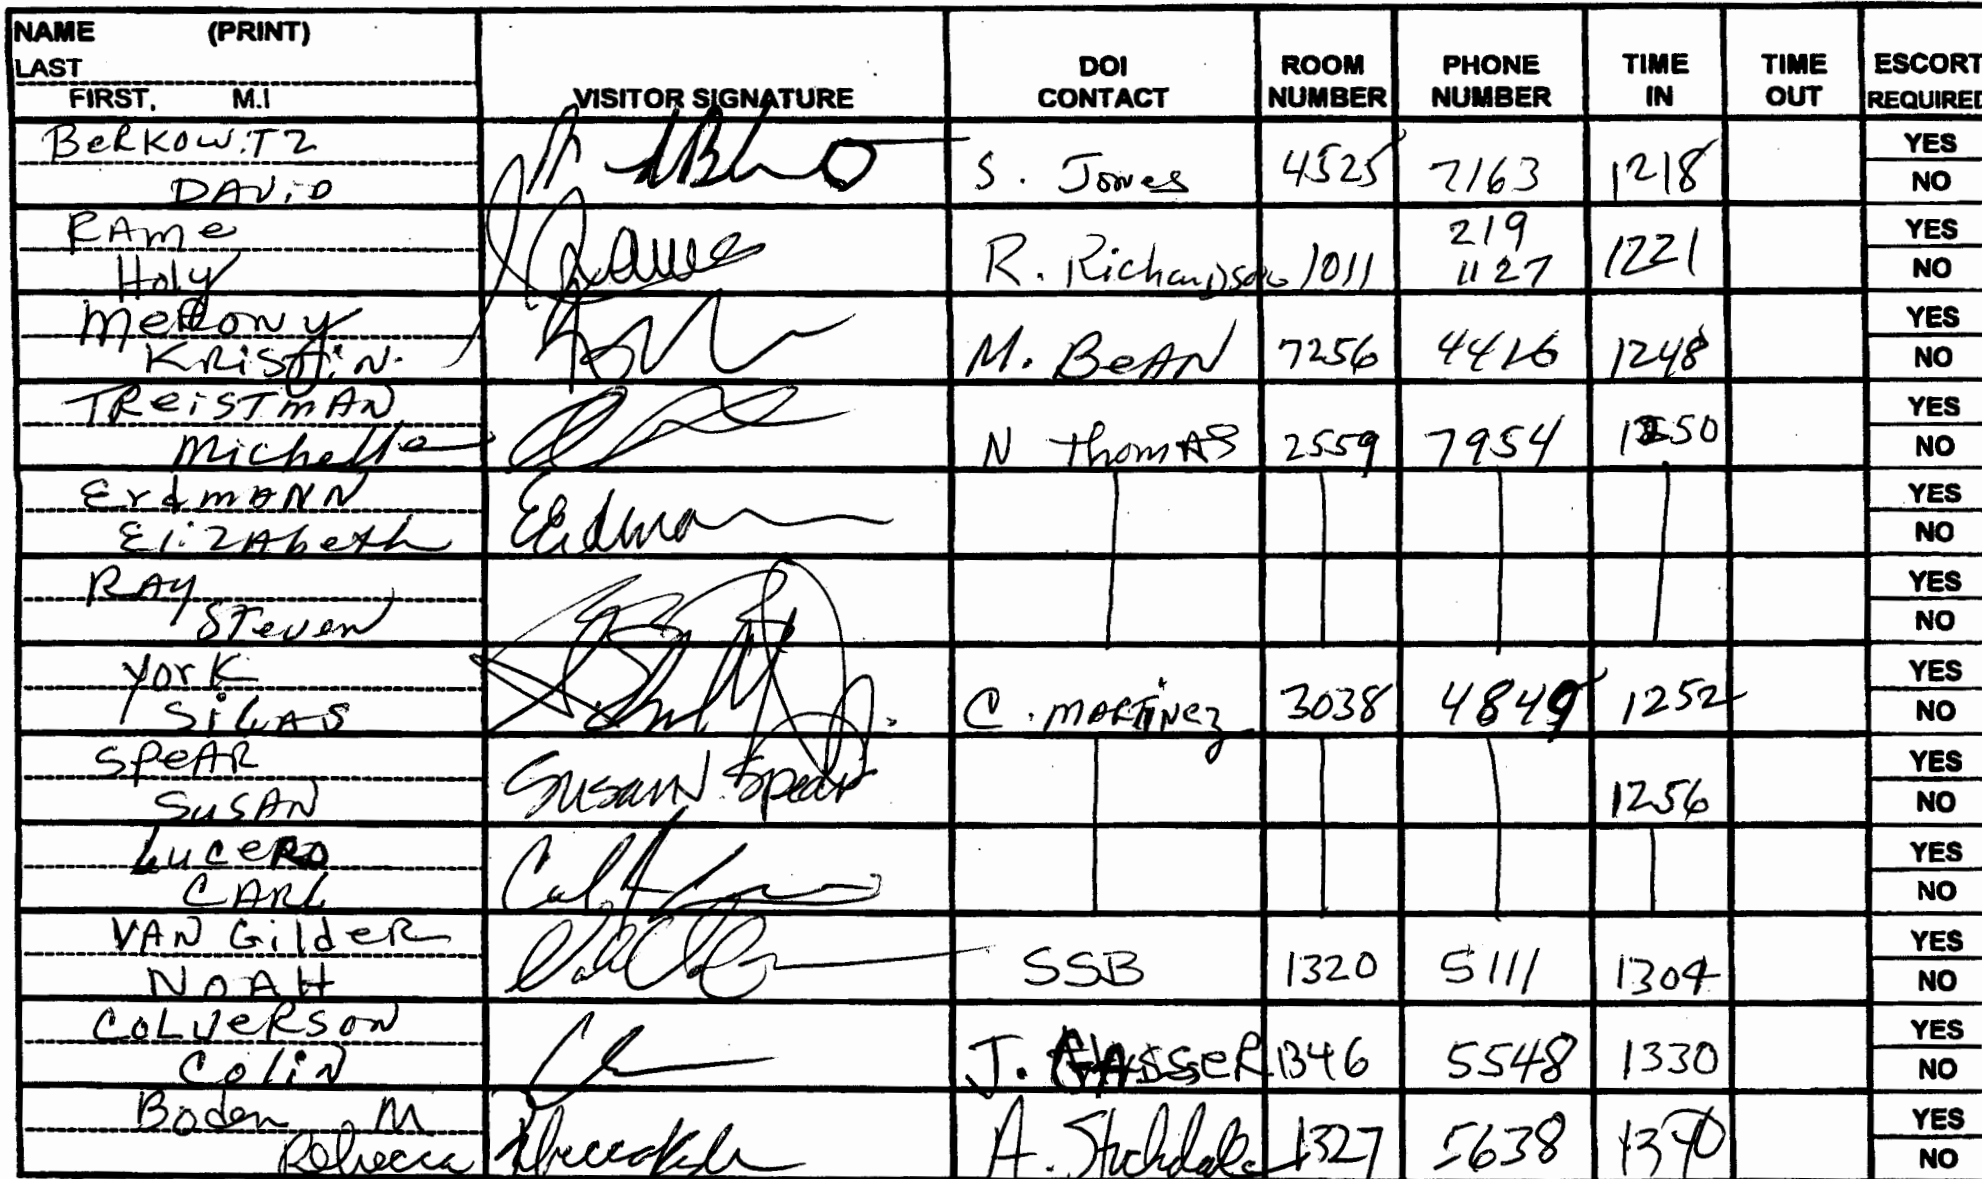 NAME (PRINT)
LAST
FIRST, M.I
VISITOR SIGNATURE
DOI CONTACT
ROOM NUMBER
PHONE NUMBER
TIME IN
TIME OUT
ESCORT REQUIRED
BeRKOWiTZ
DAViD
S. Jones 4525 7163 1218
YES
NO
RAme
Holy
R. Richardson 1011 219 1127 1221
YES
NO
MeRony
KRiSTiN
M. BeAN 7256 4416 1248
YES
NO
TReiSTmAN
Michelle
N ThomAS 2559 7954 1250
YES
NO
ErdmANN
EliZAbeth
YES
NO
RAy
STeven
YES
NO
York
SiLAS
C. MARTiNez 3038 4849 1252
YES
NO
SPeAR
SuSAN
Susan Spear
1256
YES
NO
LuceRO
CARL
YES
NO
VAN GildeR
NOAH
SSB 1320 5111 1304
YES
NO
COLVeRSON
ColiN
J. GASSeR 1346 5548 1330
YES
NO
Boden M
Rebecca
A. 1327 5638 1340
YES
NO